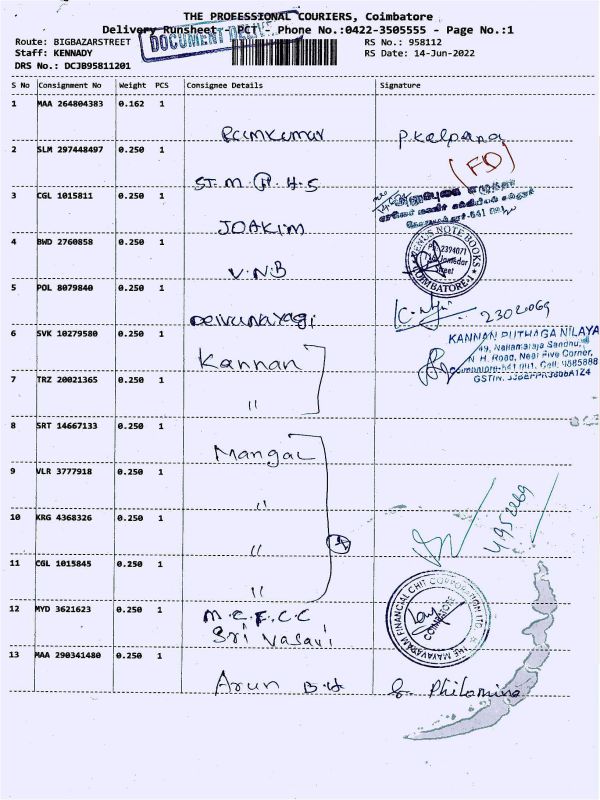 THE PROFESSIONAL COURIERS, Coimbatore
Delivery Runsheet - PCT - Phone No.:0422-3505555 - Page No.:1
DOCUMENT
Route: BIGBAZARSTREET
RS No.: 958112
Staff: KENNADY
RS Date: 14-Jun-2022
DRS No.: DCJB95811201
S No Consignment No Weight PCS Consignee Details Signature
1 MAA 264804383 0.162 1
Ramkumar P. Kalpana
2 SLM 297448497 0.250 1
(FD)
ST. M. H. S
3 CGL 1015811 0.250 1
JOAKIM
4 BWD 2760858 0.250 1
VENUS NOTE BOOKS
2394071
Street
COIMBATORE-1
V.N.B
5 POL 8079840 0.250 1
Deivanayagi 2302069
6 SVK 10279580 0.250 1
KANNAN PUTHAGA NILAYA
49, Nallamaraja Sandhu,
N. H. Road, Near Five Corner,
Kannan
7 TRZ 20021365 0.250 1
"
8 SRT 14667133 0.250 1
Mangal
9 VLR 3777918 0.250 1
"
10 KRG 4368326 0.250 1
4952069
"
4
11 CGL 1015845 0.250 1
"
12 MYD 3621623 0.250 1
M.C.F.C.C
Sri Vasavi
THE MAYAVARAM FINANCIAL CHIT CORPORATION LTD.
COIMBATORE
13 MAA 290341480 0.250 1
Arun B.H S. Philomina